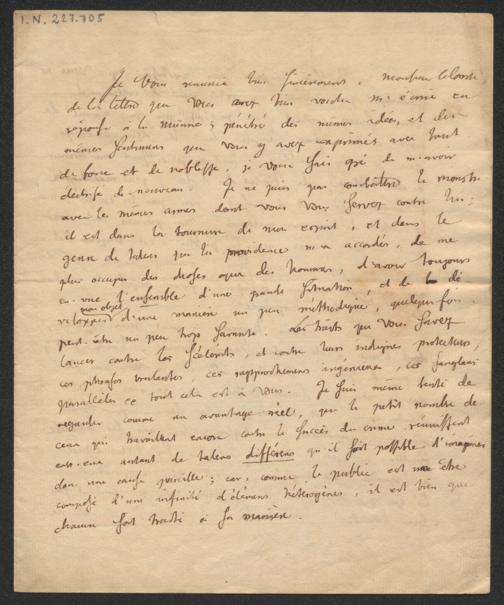 I.N. 227.705
Je vous remercie bien sincèrement, monsieur le Comte,
de la lettre que vous avez bien voulu m'écrire en
réponse à la mienne; pénétré des mêmes idées, et des
mêmes sentimens que vous y avez exprimés avec tant
de force et de noblesse, je vous sais gré de m'avoir
électrisé de nouveau. Je ne puis pas combattre le monstre
avec les mêmes armes dont vous vous servez contre lui;
il est dans la tournure de mon esprit, et dans le
genre de talens que la providence m'a accordés, de me
plus occuper des choses que des hommes, d'avoir toujours
en vue l'ensemble d'une grande situation, et de dé
mon objet
velopper d'une manière un peu méthodique, quelquefois
peut-être un peu trop savante. Les traits que vous savez
lancer contre les scélérats, et contre leurs indignes protecteurs,
ces phrases brulantes, ces rapprochemens ingénieux, ces sanglans
parallèles tout cela est à vous. Je suis même tenté de
regarder comme un avantage réel, que le petit nombre de
ceux qui travaillent encore contre le succès du crime réunissent
entr-eux autant de talens différens qu'il soit possible d'imaginer
dans une cause pareille; car, comme le public est un être
composé d'une infinité d'élémens hétérogènes, il est bien que
chacun soit traité à sa manière.